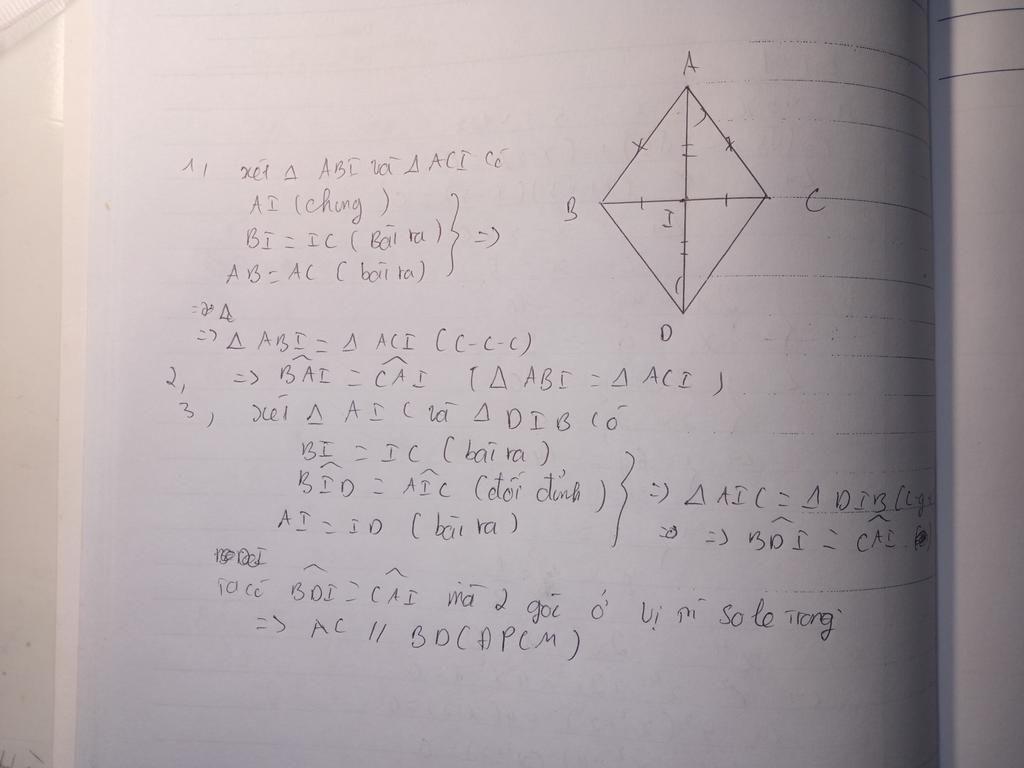 A
B
I
C
D
1, xét Δ ABI và Δ ACI có
AI (chung)
BI = IC (Bài ra)
AB = AC (bài ra)
} =>
=> Δ
=> Δ ABI = Δ ACI (C-C-C)
2, => BÂI = CÂI (Δ ABI = Δ ACI)
3, xét Δ AIC và Δ DIB CÓ
BI = IC (bài ra)
BÎD = AÎC (đối đỉnh)
AI = ID (bài ra)
} => Δ AIC = Δ DIB (C-g-
=> BD̂I = CÂI
Ta có BD̂I = CÂI mà 2 góc ở vị trí so le trong
=> AC // BD (ĐPCM)